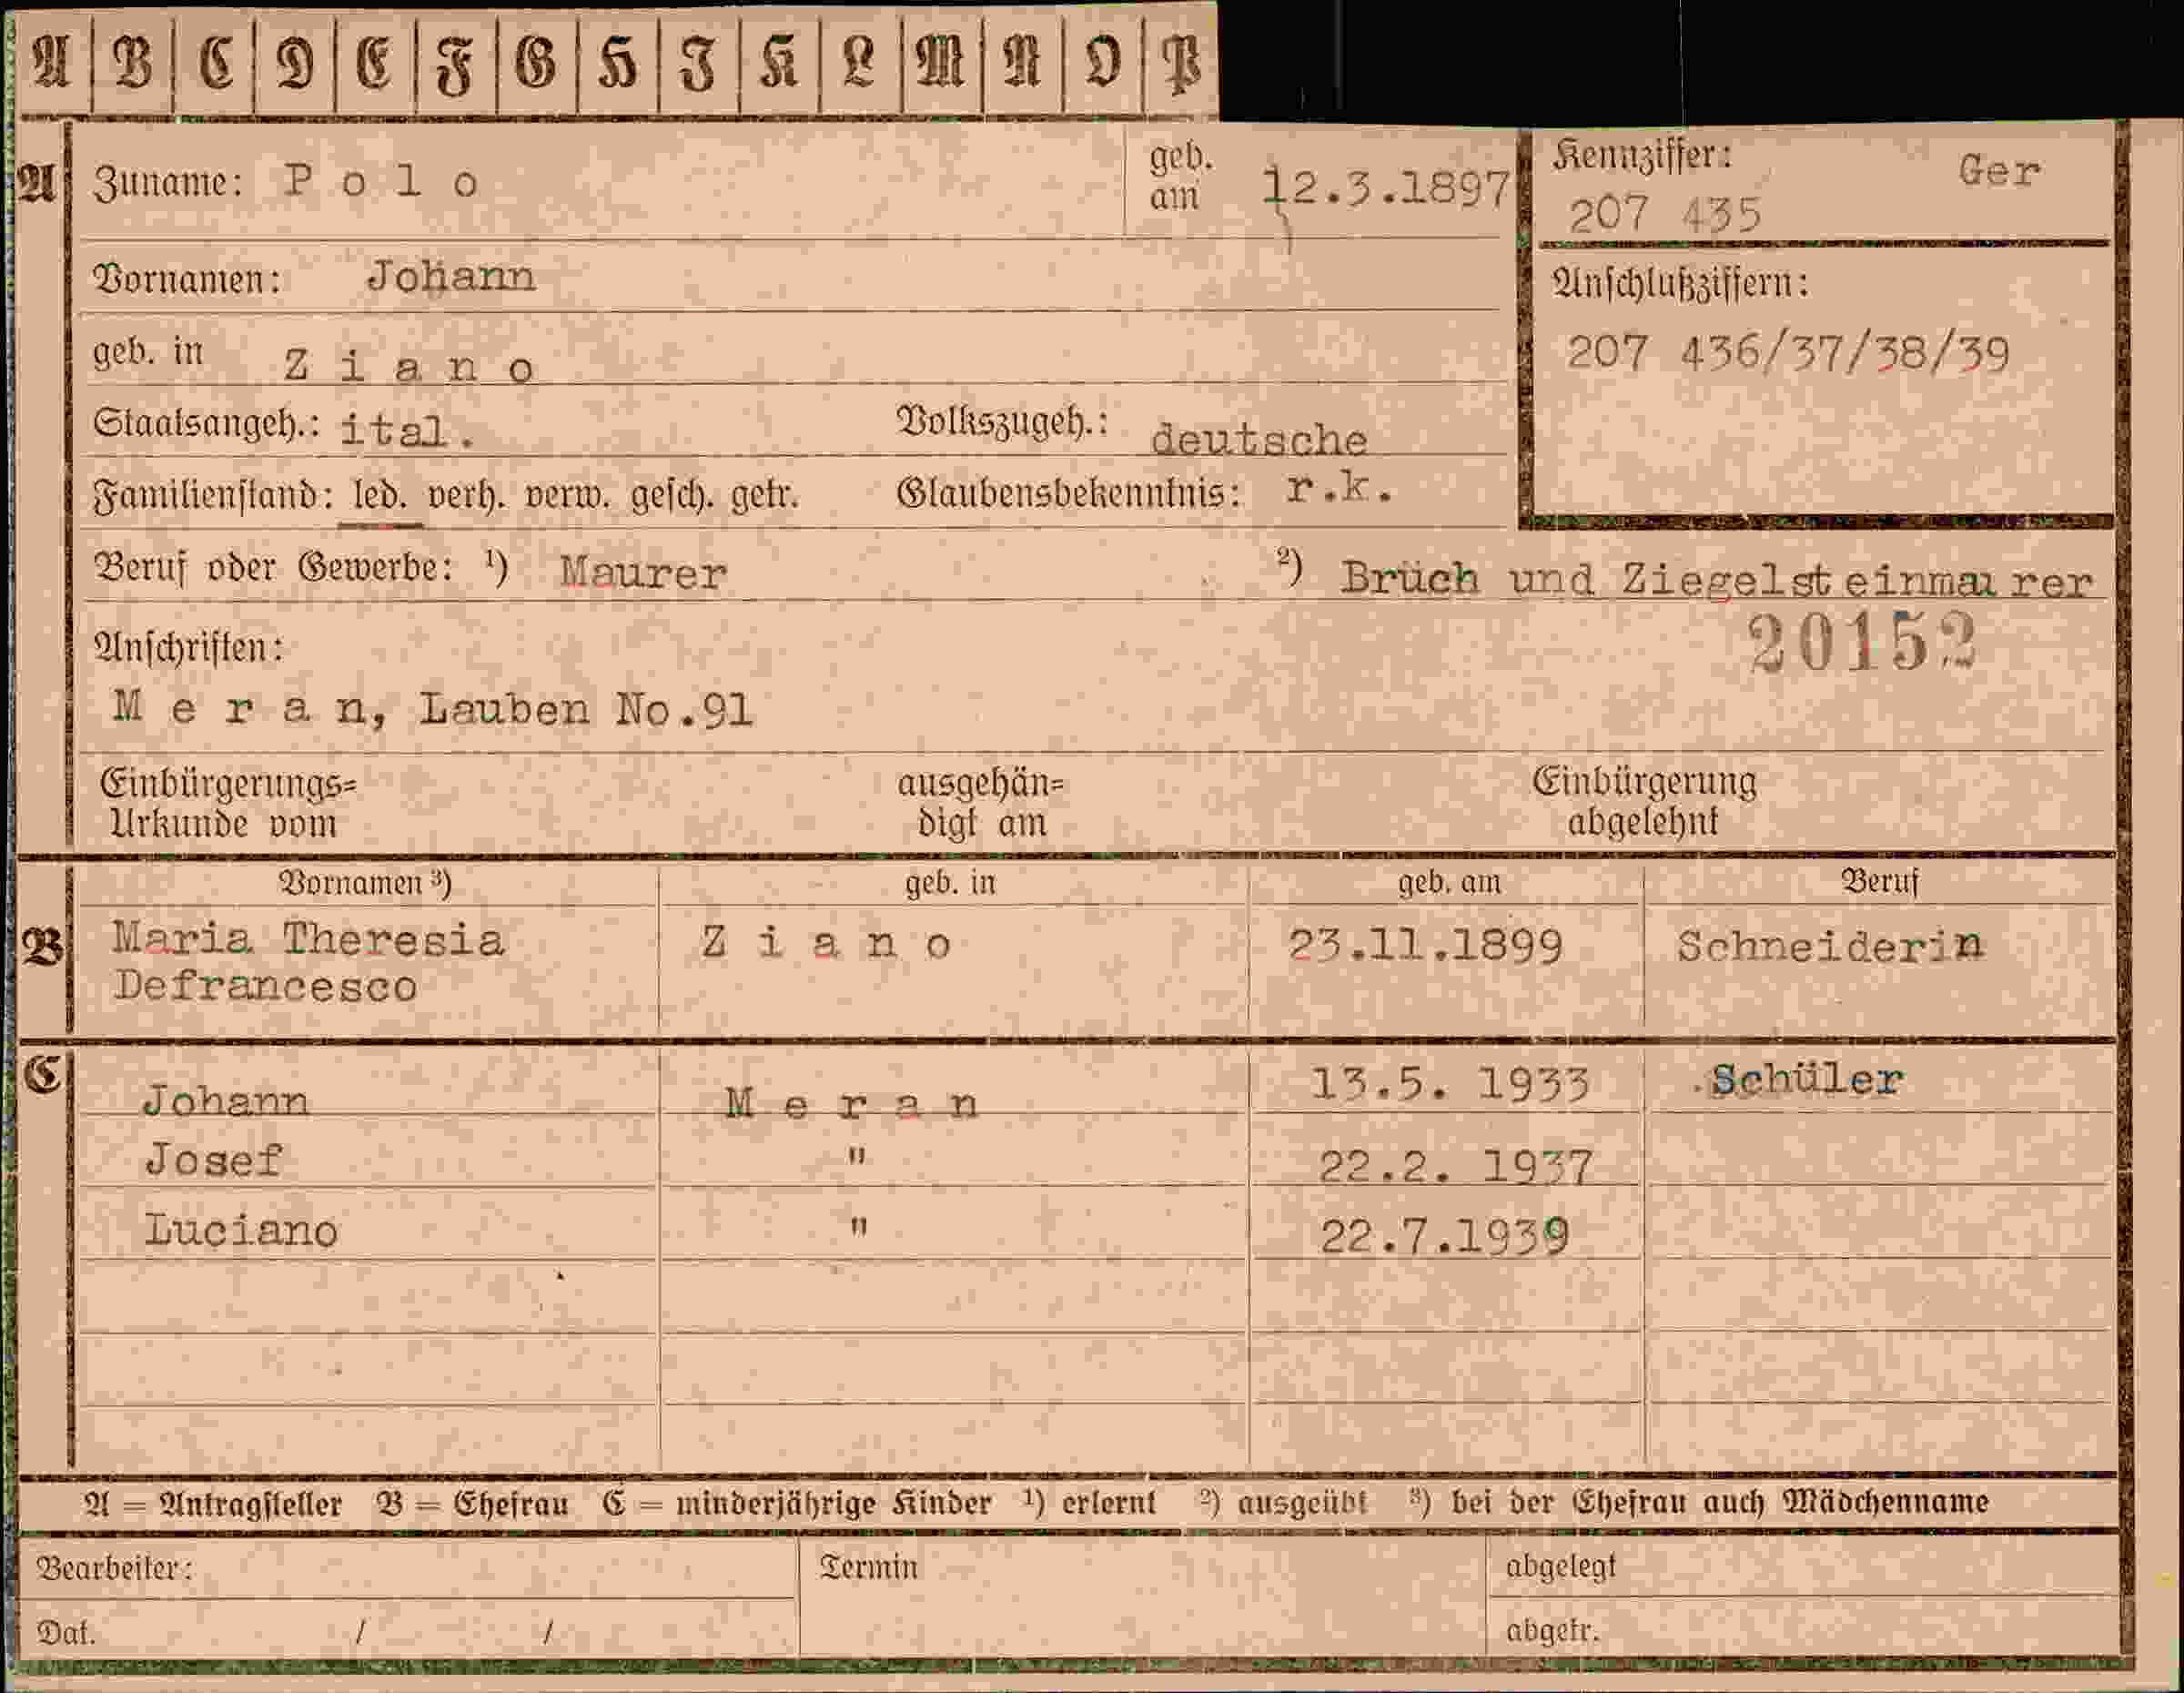 A B C D E F G H I K L M N O P
A Zuname: P o l o geb. am 12.3.1897 Kennziffer: Ger
207 435
Vornamen: Johann Anschlußziffern:
geb. in Z i a n o 207 436/37/38/39
Staatsangeh.: ital. Volkszugeh.: deutsche
Familienstand: led. verh. verw. gesch. getr. Glaubensbekenntnis: r.k.
Beruf oder Gewerbe: ¹) Maurer ²) Bruch und Ziegelsteinmaurer
Anschriften: 20152
M e r a n, Lauben No.91
Einbürgerungs= ausgehän= Einbürgerung
Urkunde vom digt am abgelehnt
Vornamen ³) geb. in geb. am Beruf
B Maria Theresia Z i a n o 23.11.1899 Schneiderin
Defrancesco
C Johann M e r a n 13.5. 1933 Schüler
Josef " 22.2. 1937
Luciano " 22.7.1939
A = Antragsteller B = Ehefrau C = minderjährige Kinder ¹) erlernt ²) ausgeübt ³) bei der Ehefrau auch Mädchenname
Bearbeiter: Termin abgelegt
Dat. / / abgetr.